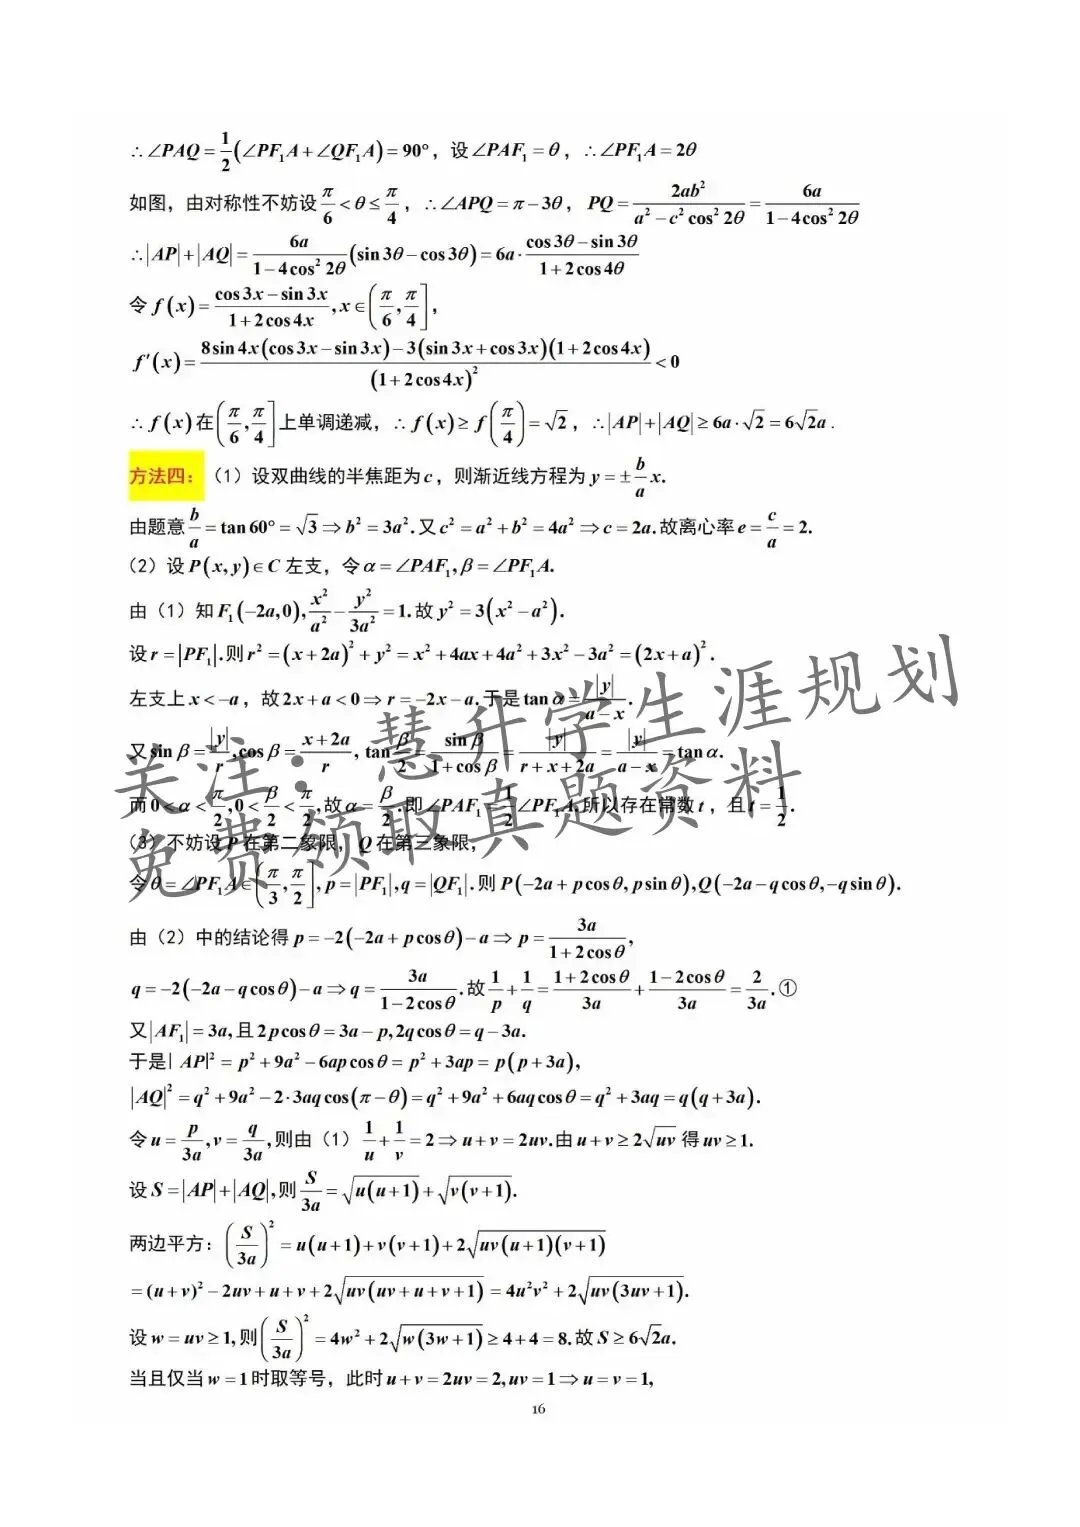 ∴∠PAQ = 1/2(∠PF₁A + ∠QF₁A) = 90°，设∠PAF₁ = θ，∴∠PF₁A = 2θ
如图，由对称性不妨设 π/6 < θ ≤ π/4，∴∠APQ = π − 3θ，PQ = 2ab²/(a² − c² cos² 2θ) = 6a/(1 − 4cos² 2θ)
∴|AP| + |AQ| = 6a/(1 − 4cos² 2θ) (sin 3θ − cos 3θ) = 6a · (cos 3θ − sin 3θ)/(1 + 2cos 4θ)
令 f(x) = (cos 3x − sin 3x)/(1 + 2cos 4x), x ∈ (π/6, π/4]，
f′(x) = [8sin 4x(cos 3x − sin 3x) − 3(sin 3x + cos 3x)(1 + 2cos 4x)]/(1 + 2cos 4x)² < 0
∴ f(x)在(π/6, π/4]上单调递减，∴ f(x) ≥ f(π/4) = √2，∴|AP| + |AQ| ≥ 6a · √2 = 6√2a .
方法四：（1）设双曲线的半焦距为c，则渐近线方程为 y = ± b/a x.
由题意 b/a = tan 60° = √3 ⇒ b² = 3a². 又 c² = a² + b² = 4a² ⇒ c = 2a. 故离心率 e = c/a = 2.
（2）设 P(x, y) ∈ C 左支，令 α = ∠PAF₁, β = ∠PF₁A.
由（1）知 F₁(−2a, 0), x²/a² − y²/3a² = 1. 故 y² = 3(x² − a²).
设 r = |PF₁|. 则 r² = (x + 2a)² + y² = x² + 4ax + 4a² + 3x² − 3a² = (2x + a)².
左支上 x < −a，故 2x + a < 0 ⇒ r = −2x − a. 于是 tan α = |y|/(a − x).
又 sin β = |y|/r, cos β = (x + 2a)/r, tan β/2 = sin β/(1 + cos β) = |y|/(r + x + 2a) = |y|/(a − x) = tan α.
而 0 < α < π/2, 0 < β/2 < π/2, 故 α = β/2. 即 ∠PAF₁ = 1/2 ∠PF₁A, 所以存在常数 t，且 t = 1/2.
（3）不妨设 P 在第二象限，Q 在第三象限，
令 θ = ∠PF₁A ∈ (π/3, π/2], p = |PF₁|, q = |QF₁|. 则 P(−2a + p cos θ, p sin θ), Q(−2a − q cos θ, −q sin θ).
由（2）中的结论得 p = −2(−2a + p cos θ) − a ⇒ p = 3a/(1 + 2cos θ),
q = −2(−2a − q cos θ) − a ⇒ q = 3a/(1 − 2cos θ). 故 1/p + 1/q = (1 + 2cos θ)/3a + (1 − 2cos θ)/3a = 2/3a. ①
又 |AF₁| = 3a, 且 2p cos θ = 3a − p, 2q cos θ = q − 3a.
于是| AP|² = p² + 9a² − 6ap cos θ = p² + 3ap = p(p + 3a),
|AQ|² = q² + 9a² − 2 · 3aq cos(π − θ) = q² + 9a² + 6aq cos θ = q² + 3aq = q(q + 3a).
令 u = p/3a, v = q/3a, 则由（1）1/u + 1/v = 2 ⇒ u + v = 2uv. 由 u + v ≥ 2√(uv) 得 uv ≥ 1.
设 S = |AP| + |AQ|, 则 S/3a = √(u(u + 1)) + √(v(v + 1)).
两边平方：(S/3a)² = u(u + 1) + v(v + 1) + 2√(uv(u + 1)(v + 1))
= (u + v)² − 2uv + u + v + 2√(uv(uv + u + v + 1)) = 4u²v² + 2√(uv(3uv + 1)).
设 w = uv ≥ 1, 则 (S/3a)² = 4w² + 2√(w(3w + 1)) ≥ 4 + 4 = 8. 故 S ≥ 6√2a.
当且仅当 w = 1 时取等号，此时 u + v = 2uv = 2, uv = 1 ⇒ u = v = 1,
16
关注：慧升学生涯规划
免费领取真题资料